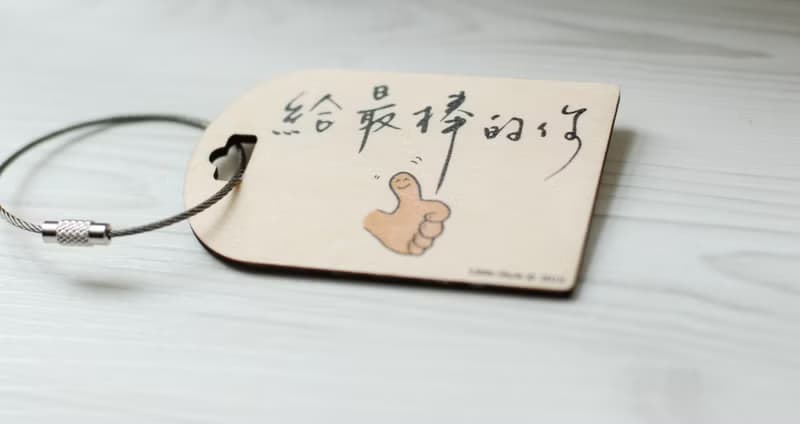 給最棒的你